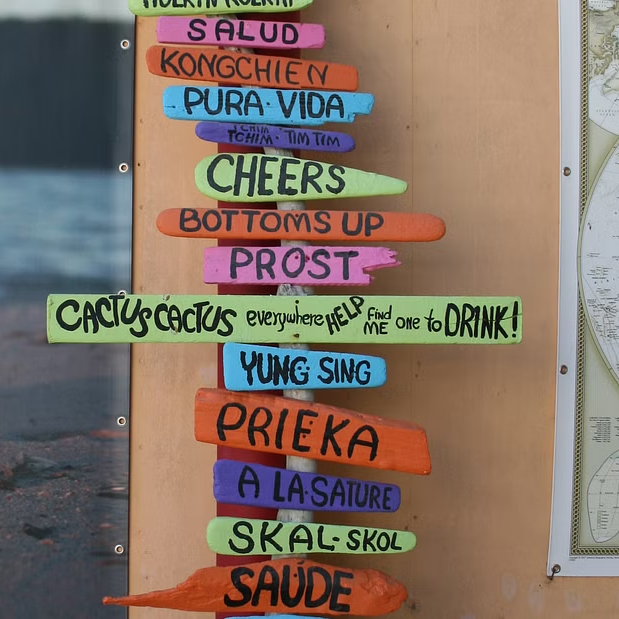 SALUD
KONGCHIEN
PURA·VIDA
TCHIM·TIM TIM
CHEERS
BOTTOMS UP
PROST
CACTUS CACTUS everywhere HELP find ME one to DRINK!
YUNG SING
PRIEKA
A LA·SATURE
SKAL-SKOL
SAUDE